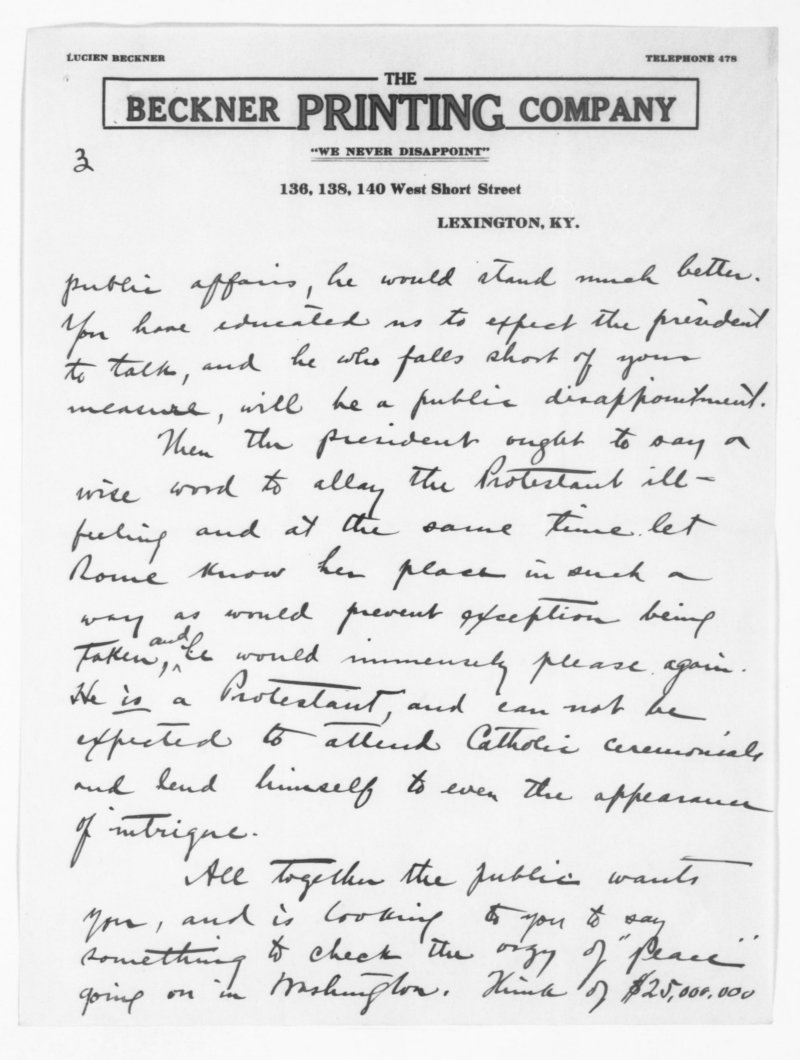 LUCIEN BECKNER
TELEPHONE 478
THE
BECKNER PRINTING COMPANY
"WE NEVER DISAPPOINT"
136, 138, 140 West Short Street
LEXINGTON, KY.
3
public affairs, he would stand much better.
You have educated us to expect the president
to talk, and he who falls short of your
measure, will be a public disappointment.
Then the president ought to say a
wise word to allay the Protestant ill-
feeling and at the same time let
Rome know her place in such a
way as would prevent exception being
taken, and he would immensely please again.
He is a Protestant, and can not be
expected to attend Catholic ceremonials
and lend himself to even the appearance
of intrigue.
All together the public wants
you, and is looking to you to say
something to check the orgy of "peace"
going on in Washington. Think of $25,000,000